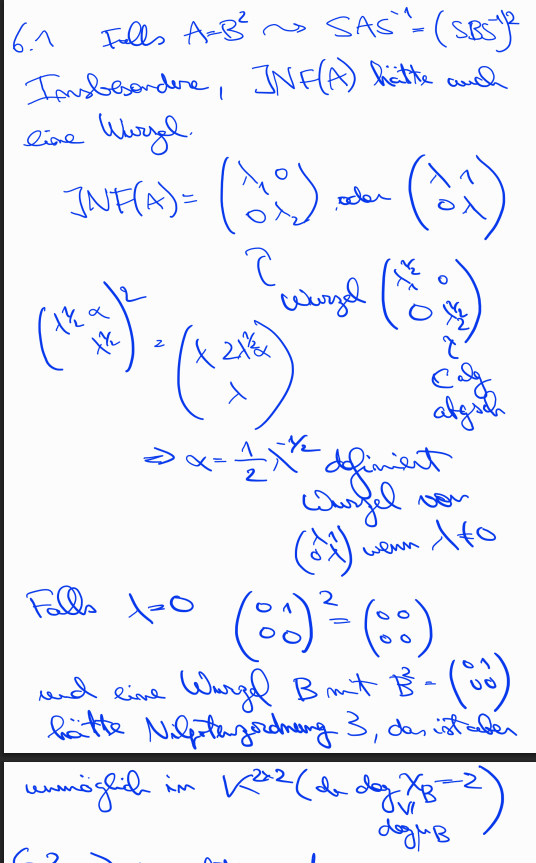 6.1 Falls A=B² ⤳ SAS⁻¹=(SBS⁻¹)²
Insbesondere, JNF(A) hätte auch
eine Wurzel.
JNF(A)= (λ₁ 0; 0 λ₂) oder (λ 1; 0 λ)
Wurzel (λ₁^½ 0; 0 λ₂^½)
(λ^½ α; λ^½)² = (λ 2λ^½α; λ)
ℂ alg
abgesch
⇒ α = 1/2 λ^-½ definiert
Wurzel von
(λ 1; 0 λ) wenn λ≠0
Falls λ=0 (0 1; 0 0)² = (0 0; 0 0)
und eine Wurzel B mit B² = (0 1; 0 0)
hätte Nilpotenzordnung 3, das ist aber
unmöglich in K^2×2 (da deg χ_B = 2)
≥
deg μ_B